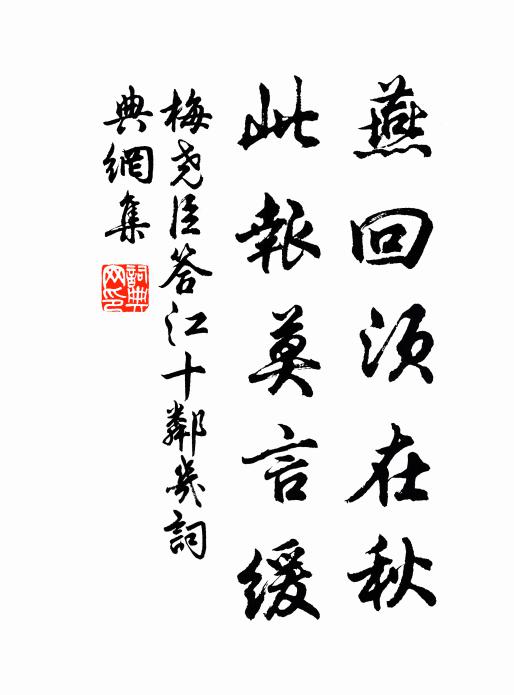 燕回須在秋
此報莫言緩
梅堯臣答江十鄰幾詞
典網集
詞典網印